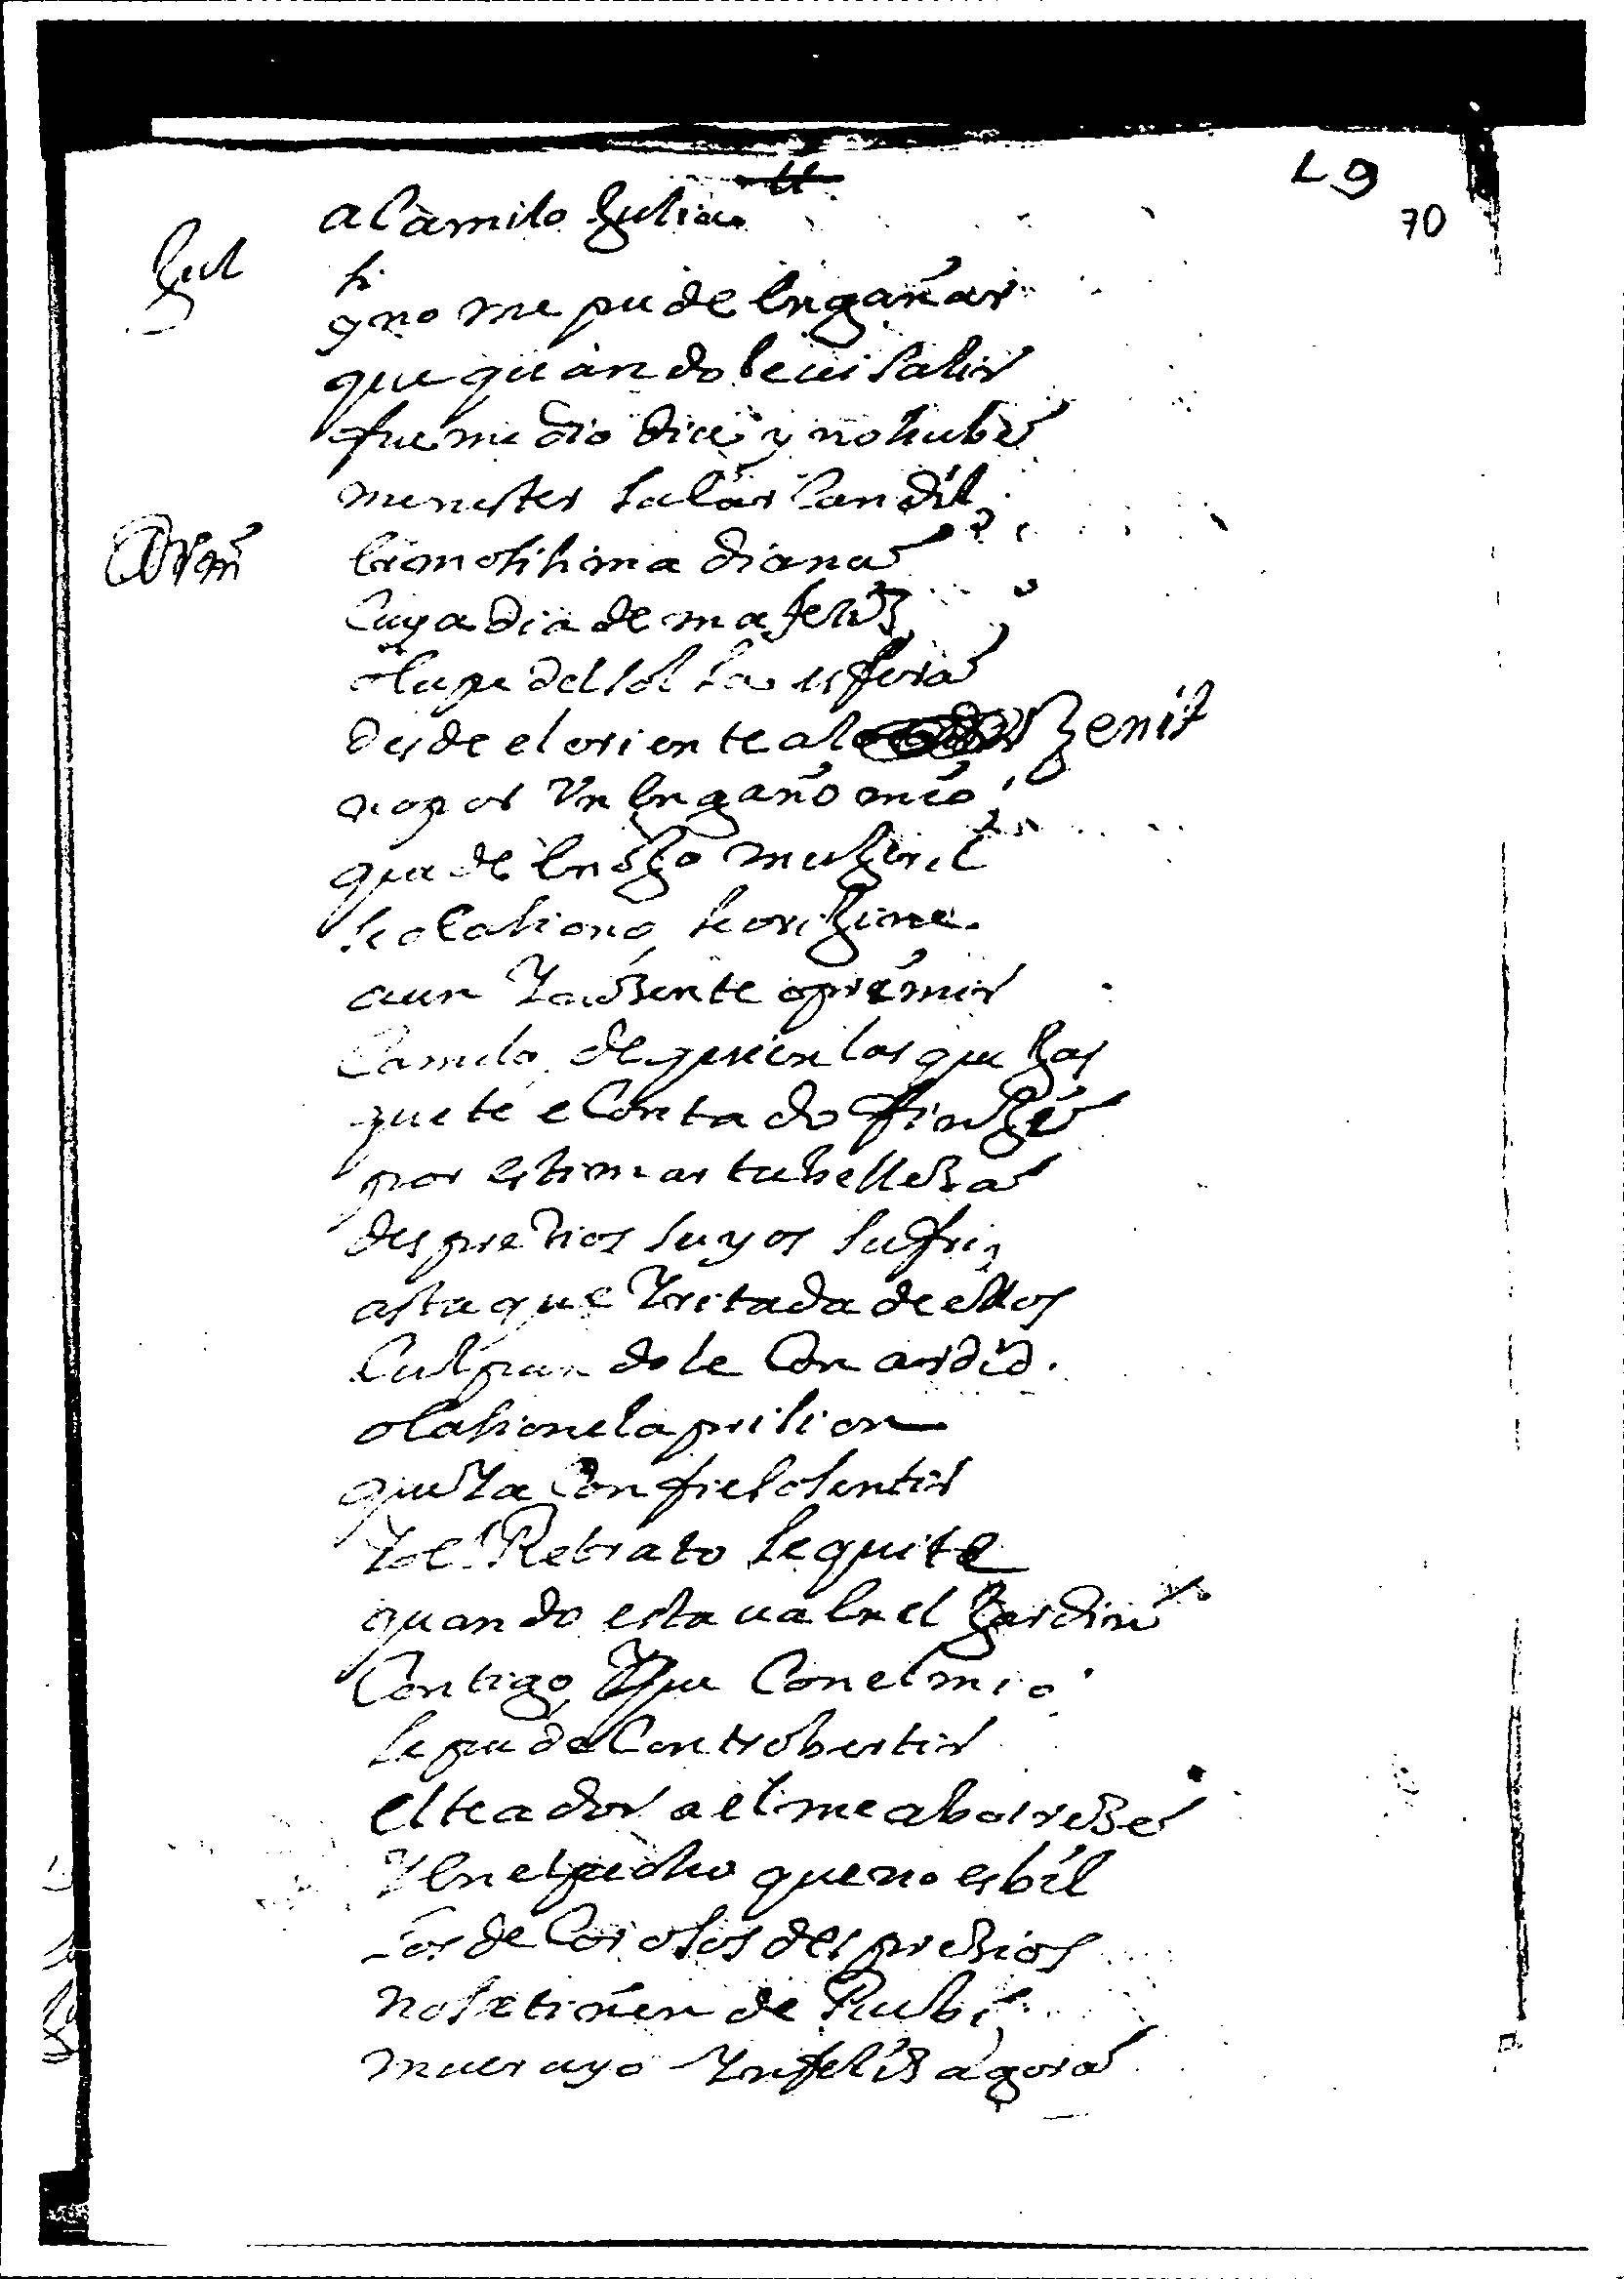 L9
70
a Camilo Julia
Jul si
y no me pude engañar
que quando le vi salir
fue medio dia y no hube
menester sacar candil
ermosisima diana
Cuya diadema feliz
ocupe del sol la esfera
desde el oriente al Zenit
no por Un engaño mio
que de enojo mugeril
se ocasiono se orijine
aun Ynosente oprimir
Camilo de quien las quejas
que te e Contado finge
por estimar tu belleza
despretios suyos sufri
asta que Yritada de ellos
Culpandole Con ardid
ocasione la prision
que ya Confieso sentir
Y el Retrato le quite
quando estava en el jardin
Contigo Y que Con el mio
le pude Controbertir
el te adora el me aborreze
Y en el pecho que no es bil
los decorosos desprezios
no se tiñen de Rubi
muera yo Ynfeliz agora